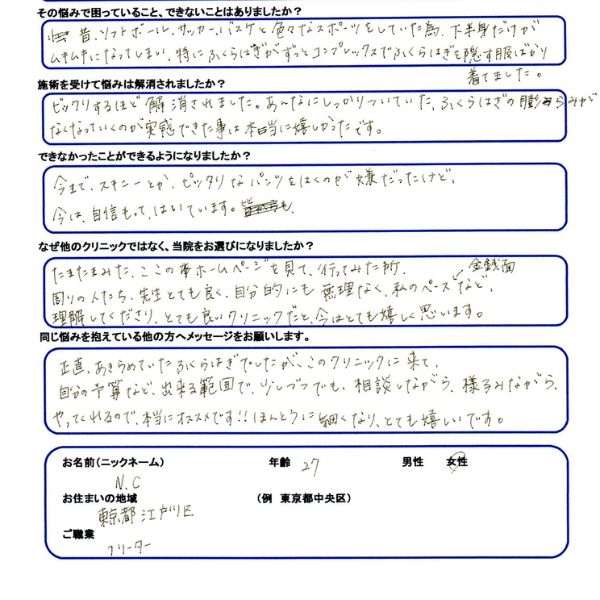 その悩みで困っていること、できないことはありましたか?
昔、ソフトボール、サッカー、バスケと色々なスポーツをしていた為、下半身だけが
ムキムキになってしまい、特にふくらはぎがずっとコンプレックスでふくらはぎを隠す服ばかり
着てました。
施術を受けて悩みは解消されましたか?
ビックリするほど解消されました。あんなにしっかりついていた、ふくらはぎの膨らみが
なくなっていくのが実感できた事は本当に嬉しかったです。
できなかったことができるようになりましたか?
今まで、スキニーとか、ピッタリなパンツをはくのが嫌だったけど、
今は、自信もって、はいています。
なぜ他のクリニックではなく、当院をお選びになりましたか?
たまたまみた、ここのホームページを見て、行ってみた所、
金銭面
周りの人たち、先生とても良く、自分的にも無理なく、私のペースなど、
理解してくださり、とても良いクリニックだと、今はとても嬉しく思います。
同じ悩みを抱えている他の方へメッセージをお願いします。
正直、あきらめていたふくらはぎでしたが、このクリニックに来て、
自分の予算など、出来る範囲で、少しづつでも、相談しながら、様子みながら、
やってくれるので、本当にオススメです!!ほんとうに細くなり、とても嬉しいです。
お名前(ニックネーム) 年齢 27 男性 女性
N.C
お住まいの地域 (例 東京都中央区)
東京都江戸川区
ご職業
フリーター